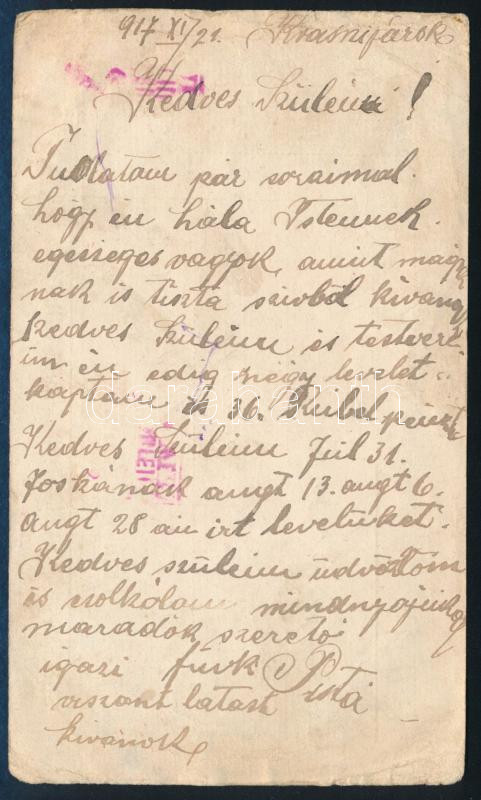 917 XI/21. Krasnijárok
Kedves Szüleim!
Tudatam pár soraimal.
hogy én hála Istennek.
egeszseges vagyok, amint magyk
nak is tiszta szivböl kivanok
Kedves Szüleim és testvere
im én edig négy levelet
kaptam és 36. Rubel pénzt
Kedves Szüleim Jul 31.
Joskának augt 13. augt 6.
augt 28 an irt levelüket.
Kedves szüleim üdvözlöm
és csolkólam mindnyájukat
maradok szerető
igazi fiuk Pista
viszont latast
kivánok